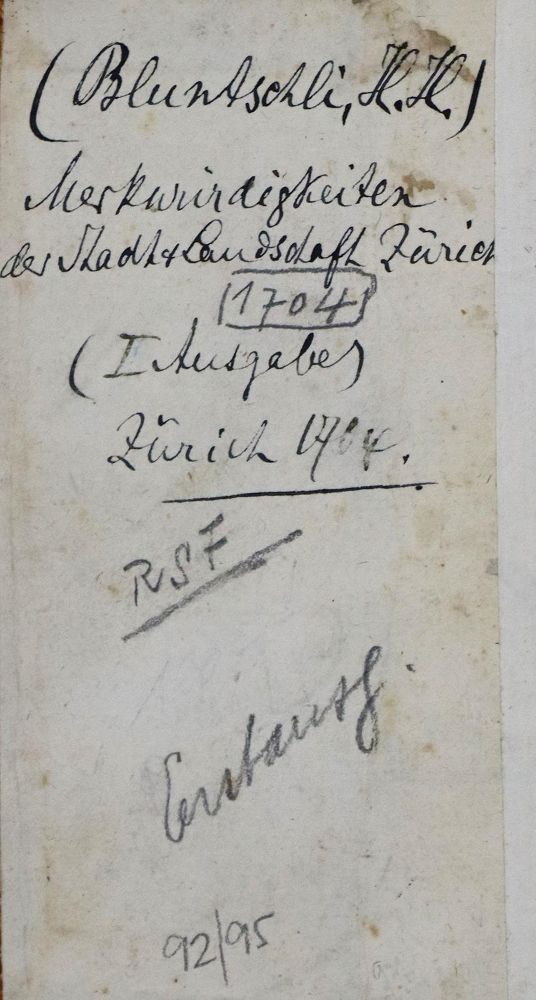 (Bluntschli, H.H.)
Merkwürdigkeiten
der Stadt & Landschaft Zürich
1704
(I Ausgabe)
Zürich 1704.
RSF
Erstausg.
92/95